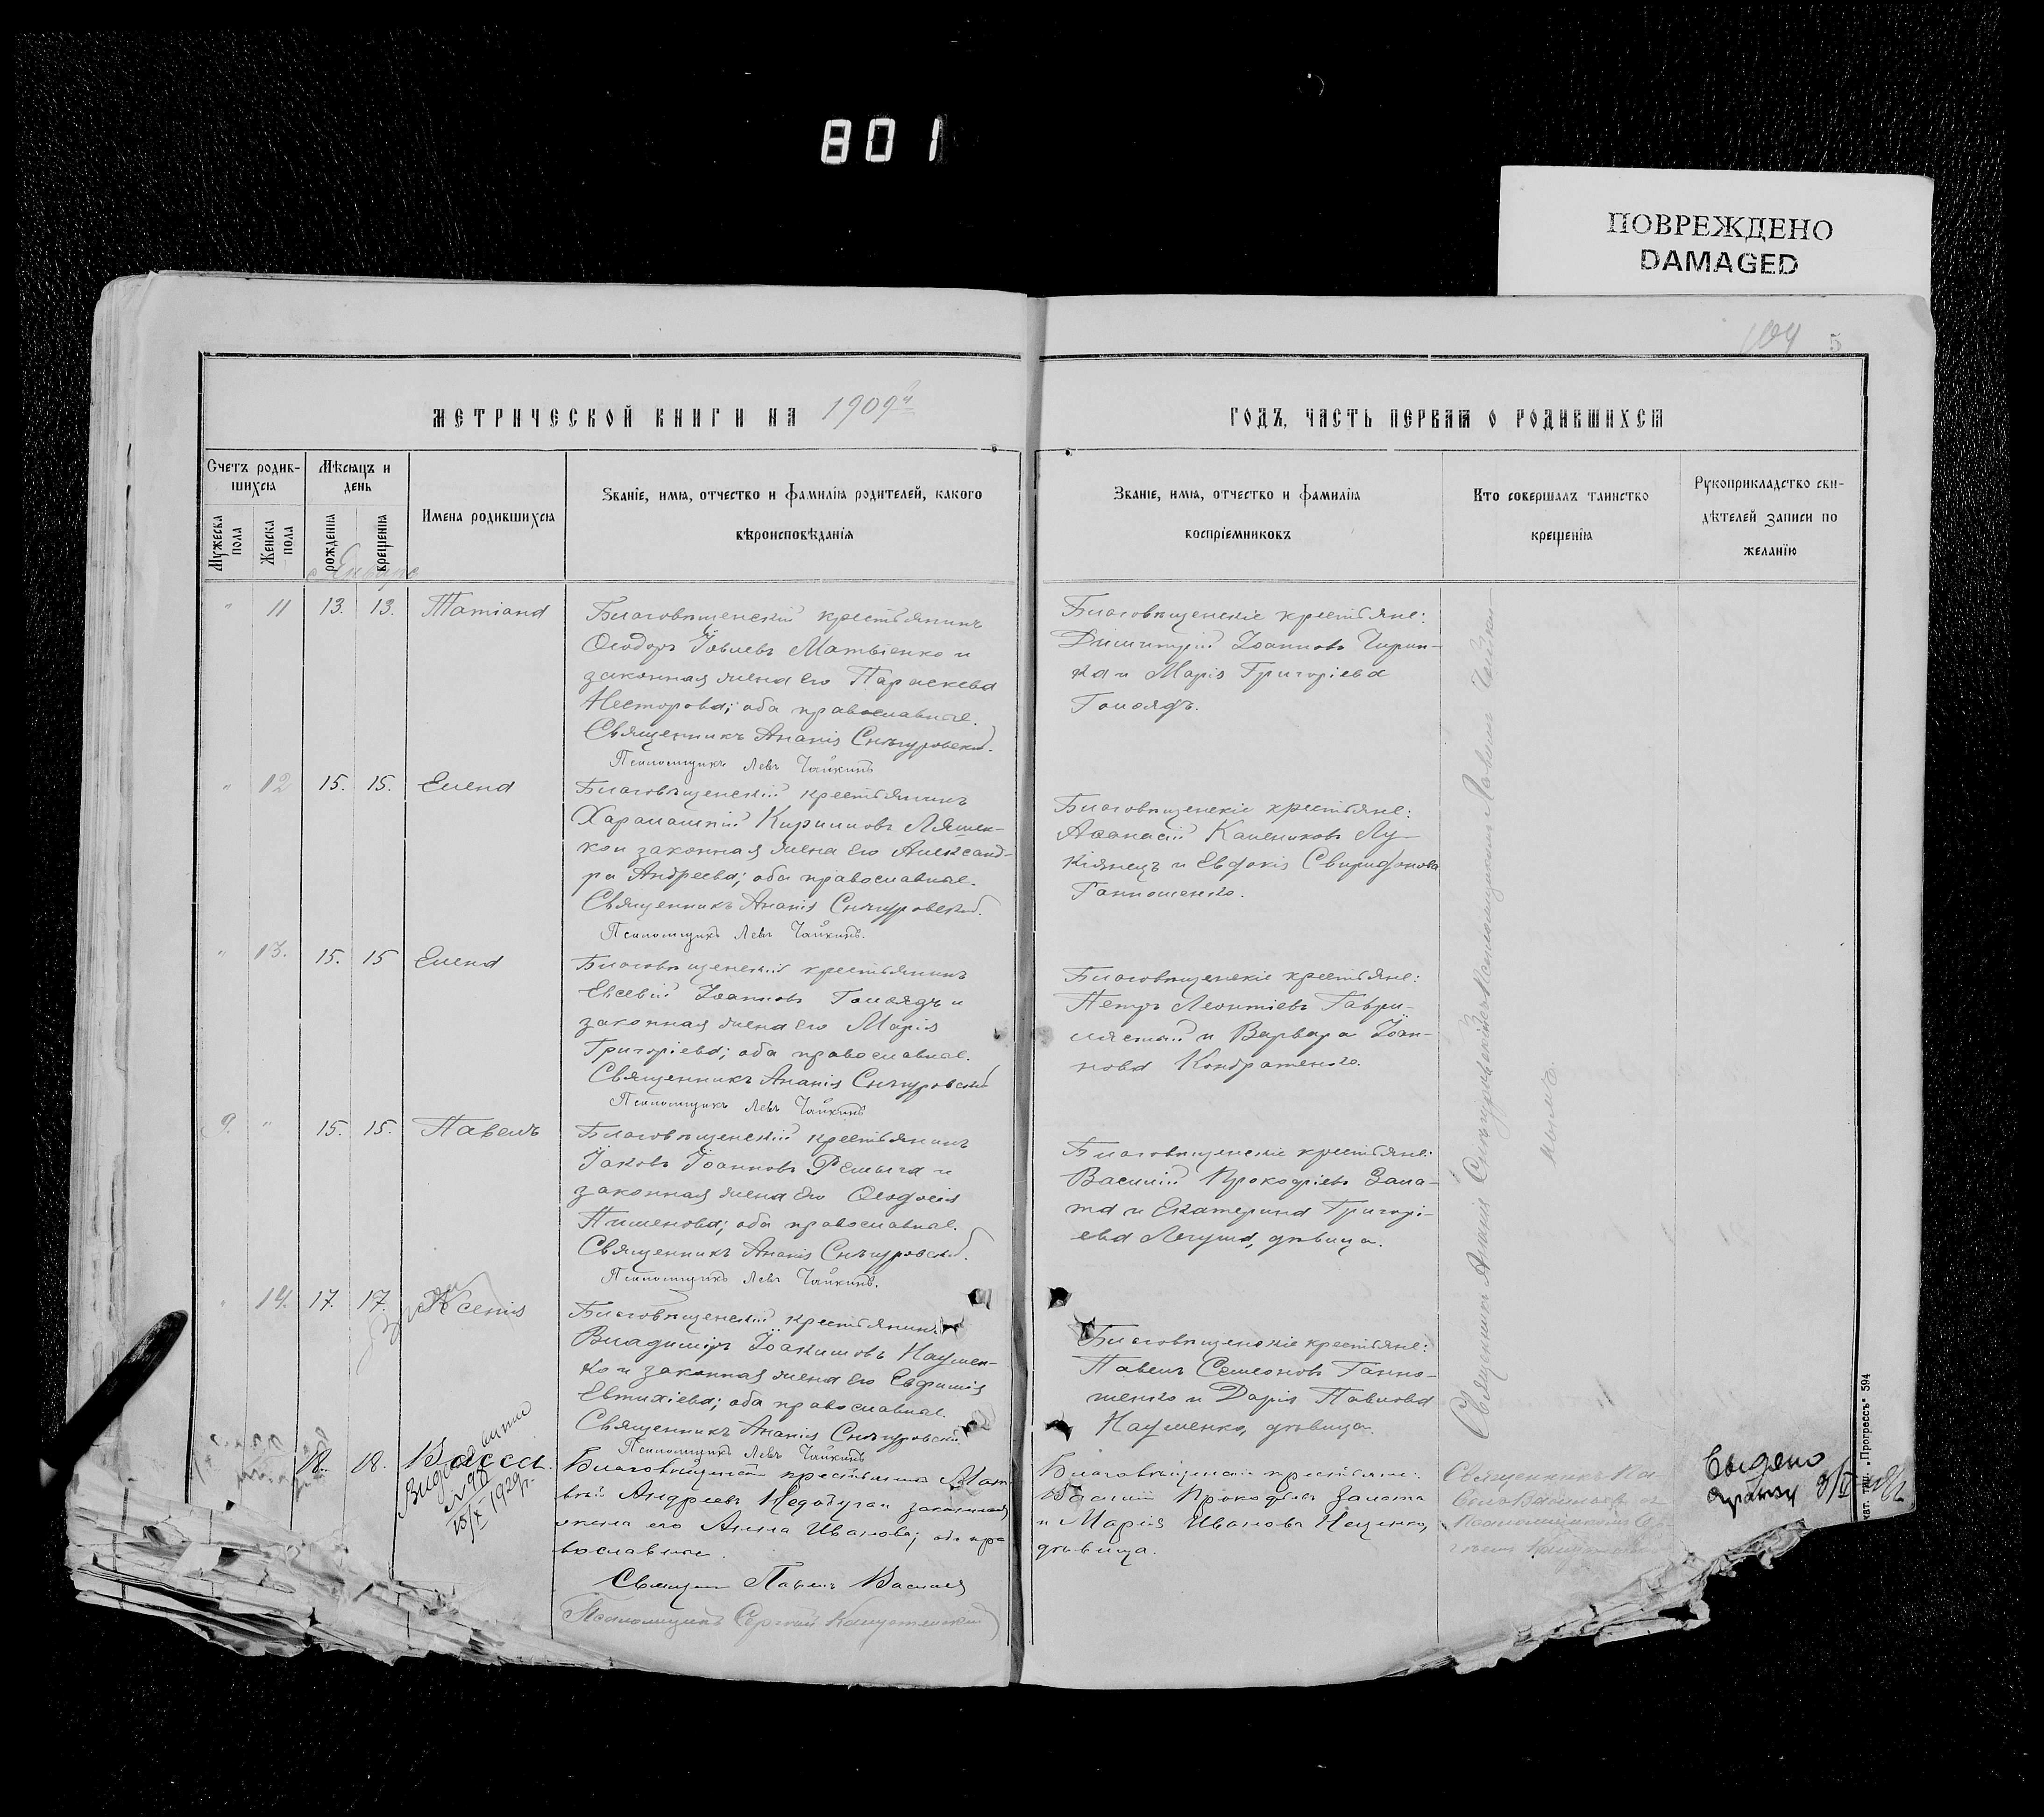 801
ПОВРЕЖДЕНО
DAMAGED
5
МЕТРИЧЕСКОЙ КНИГИ НА 1909й
ГОДЪ, ЧАСТЬ ПЕРВАЯ О РОДИВШИХСЯ
Счетъ родив-
шихся
Мужеска пола
Женска пола
Мѣсяцъ и
день
рожденія
крещенія
Имена родившихся
Званіе, имя, отчество и фамилія родителей, какого
вѣроисповѣданія
Званіе, имя, отчество и фамилія
воспріемниковъ
Кто совершалъ таинство
крещенія
Рукоприкладство сви-
дѣтелей записи по
желанію
Январь
" 11 13. 13. Татіана
Благовѣщенскій крестьянинъ
Ѳеодоръ Іовлевъ Матвіенко и
законная жена его Параскева
Несторова; оба православные.
Священникъ Ананія Снѣгуровскій.
Псаломщикъ Левъ Чайкинъ
Благовѣщенскіе крестьяне:
Димитрій Іоанновъ Чирин-
ка и Марія Григоріева
Гомоядъ.
" 12 15. 15. Елена
Благовѣщенскій крестьянинъ
Харалампій Кирилловъ Ляшен-
ко и законная жена его Александ-
ра Андреева; оба православные.
Священникъ Ананія Снѣгуровскій.
Псаломщикъ Левъ Чайкинъ.
Благовѣщенскіе крестьяне:
Аѳанасій Калениковъ Лу-
кіянецъ и Евдокія Свиридонова
Ганношенко.
" 13. 15. 15 Елена
Благовѣщенскій крестьянинъ
Евсевій Іоанновъ Гомоядъ и
законная жена его Марія
Григоріева; оба православные.
Священникъ Ананія Снѣгуровскій
Псаломщикъ Левъ Чайкинъ
Благовѣщенскіе крестьяне:
Петръ Леонтіевъ Гаври-
и Варвара Іоан-
нова Кондратенко.
9. " 15. 15. Павелъ
Благовѣщенскій крестьянинъ
Іаковъ Іоанновъ Ремыга и
законная жена его Ѳеодосія
Пименова; оба православные.
Священникъ Ананія Снѣгуровскій.
Псаломщикъ Левъ Чайкинъ.
Благовѣщенскіе крестьяне:
Василій Прокофіевъ Зала-
та и Екатерина Григорі-
ева Легуша, дѣвица.
" 14. 17. 17. Ксенія
Благовѣщенскій крестьянинъ
Владиміръ Іоакимовъ Наумен-
ко и законная жена его Евфимія
Евтихіева; оба православные.
Священникъ Ананія Снѣгуровскій.
Псаломщикъ Левъ Чайкинъ
Благовѣщенскіе крестьяне:
Павелъ Семеоновъ Ганно-
шенко и Дарія Павлова
Науменко, дѣвица.
Священникъ Ананія Снѣгуровскій съ Псаломщикомъ Львомъ Чайки-
нымъ.
18. 18. Васса.
15/X 1929р.
Благовѣщенскій крестьянинъ Мат-
вѣй Андреевъ Недодуга и законная
жена его Анна Иванова; оба пра-
вославные.
Священ Павелъ Васильев
Псаломщикъ Сергій
Благовѣщенскіе крестьяне:
Василій Прокофьевъ Залата
и Марія Иванова Наценко,
дѣвица.
Священникъ Па-
велъ Васильевъ съ
Псаломщикомъ Сер-
гѣемъ
Выдано
справку
тип. „Прогрессъ“ 594